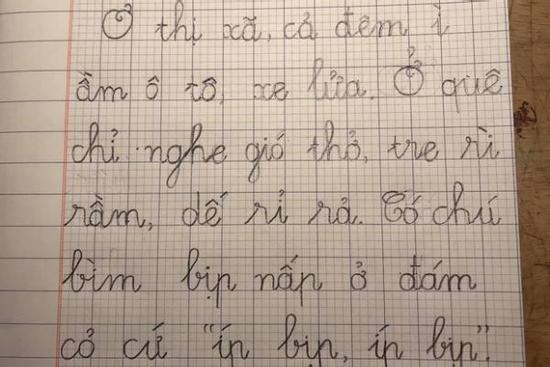 Ở thị xã, cả đêm ì
ầm ô tô, xe lửa. Ở quê
chỉ nghe gió thở, tre rì
rầm, dế rỉ rả. Có chú
bìm bịp nấp ở đám
cỏ cứ "íp bịp, íp bịp".